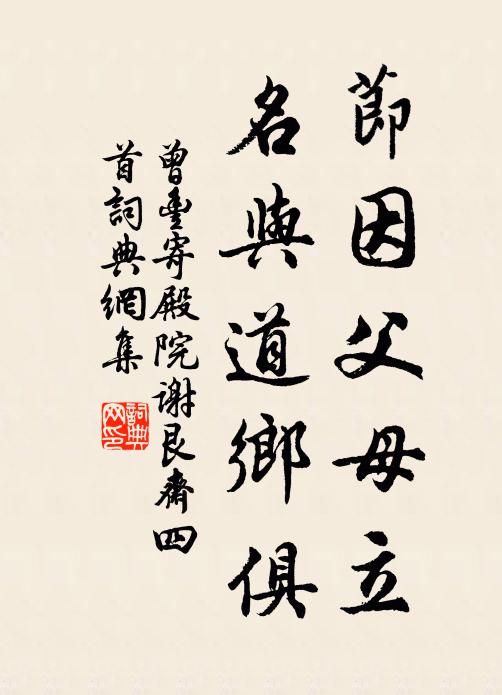 節因父母立
名與道鄉俱
曾豊寄殿院謝艮齋四
首詞典網集
詞典
网印